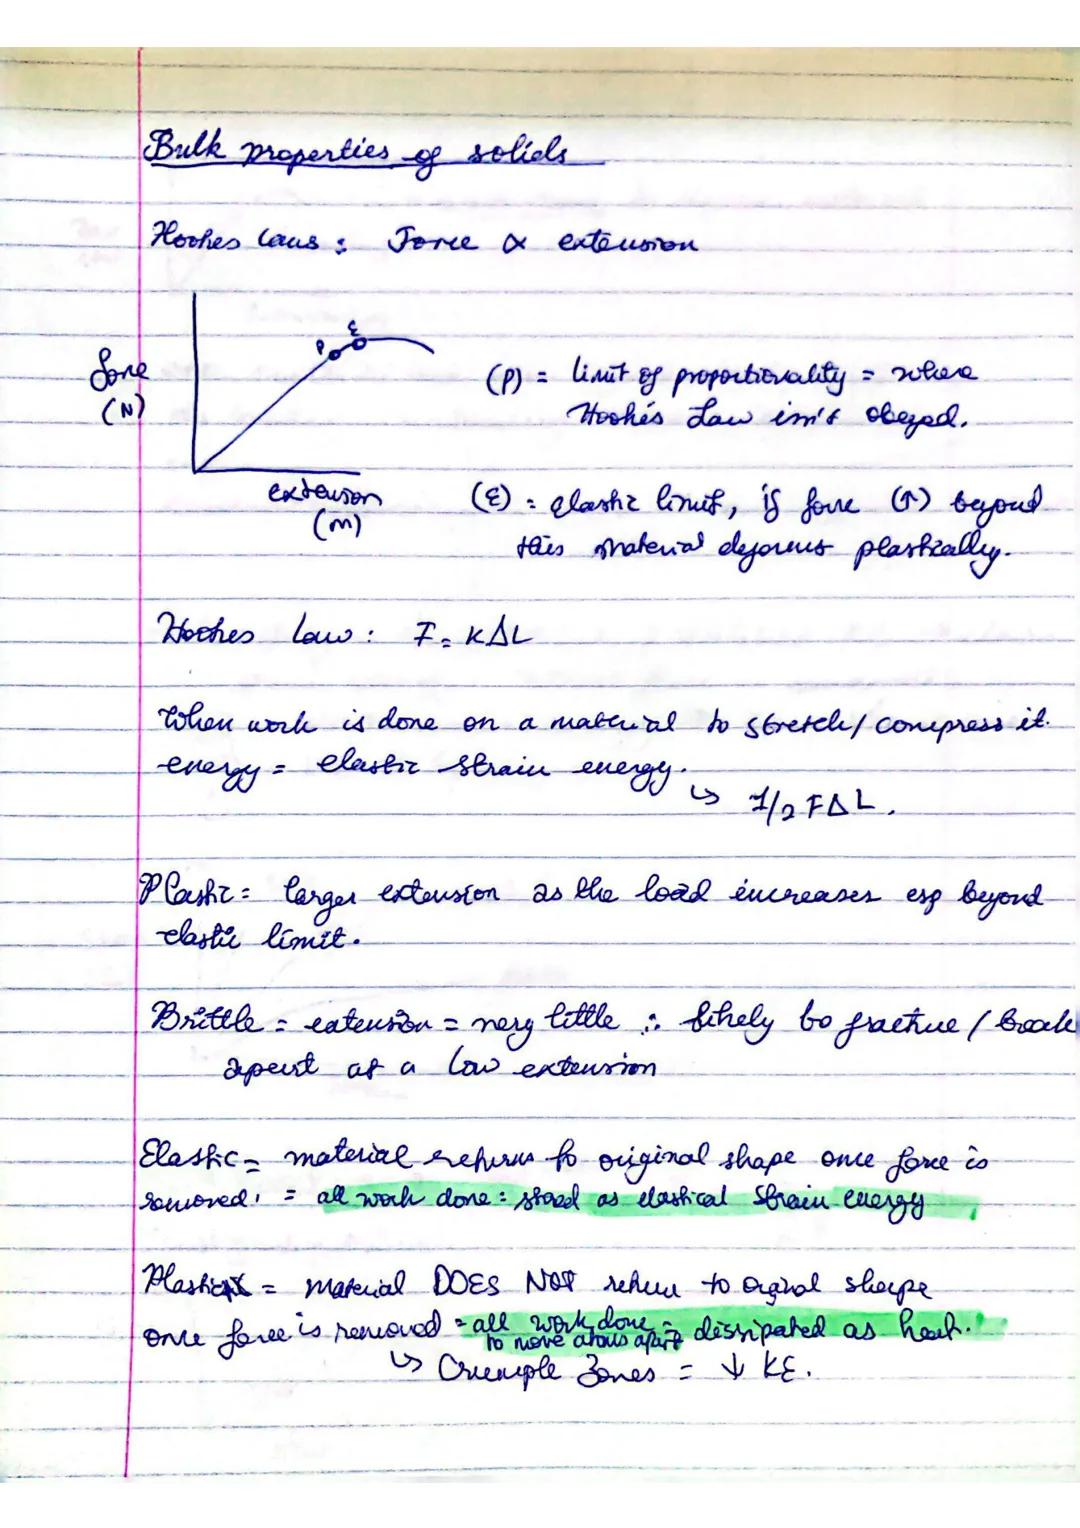 Bulk properties of solids
Hookes Law : Force ∝ extension
P
E
force
(N)
extension
(m)
(P) = limit of proportionality = where
Hooke's Law isn't obeyed.
(E) = elastic limit, if force (↑) beyond
this material deforms plastically.
Hookes Law : F = KΔL
When work is done on a material to stretch/compress it.
energy = elastic strain energy.
↳ 1/2 FΔL.
Plastic = larger extension as the load increases esp beyond
elastic limit.
Brittle = extension = very little ∴ likely to fracture / break
apart at a low extension
Elastic = material returns to original shape once force is
removed. = all work done = stored as elastical strain energy
Plastic = material DOES NOT return to orginal shape
once force is removed = all work done = dissipated as heat.
to move atoms apart
↳ Crumple Zones = ↓ KE.